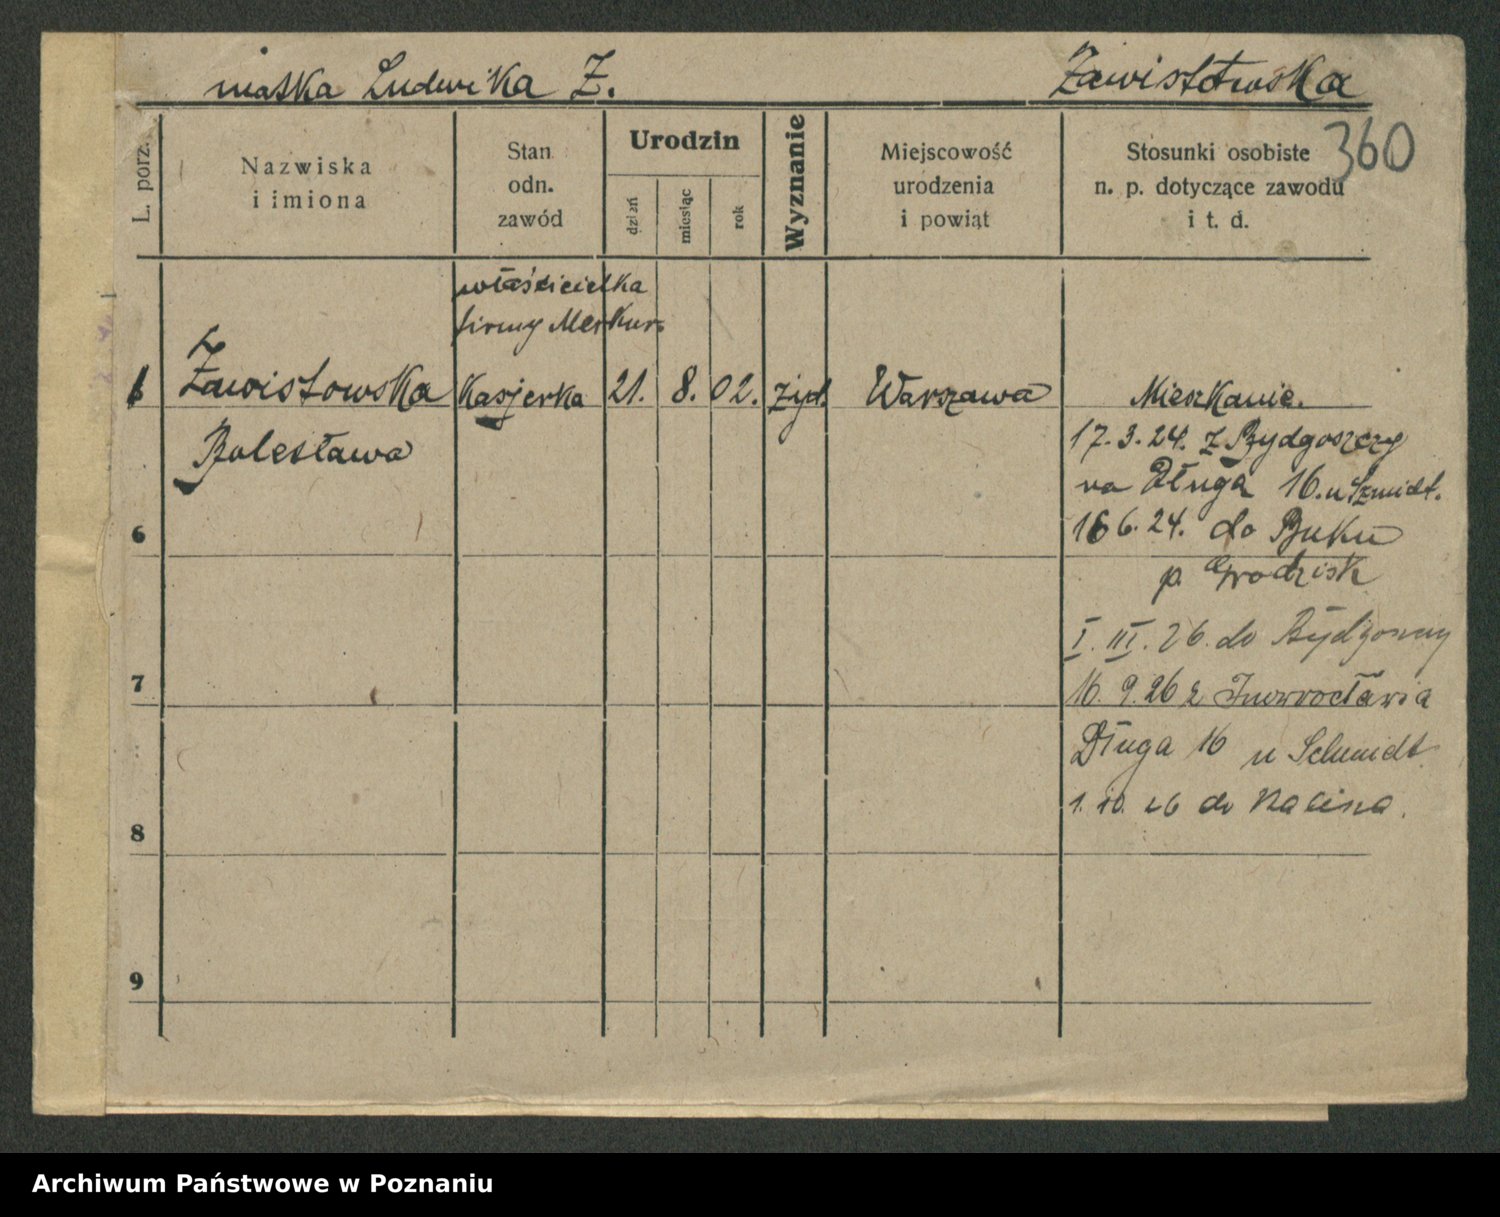 matka Ludwika Z.
Zawistowska
360
L. porz.
Nazwiska
i imiona
Stan
odn.
zawód
Urodzin
dzień
miesiąc
rok
Wyznanie
Miejscowość
urodzenia
i powiąt
Stosunki osobiste
n. p. dotyczące zawodu
i t. d.
właścicielka
firmy Merkur
Zawistowska Kasjerka 21. 8. 02. żyd. Warszawa Mieszkanie.
Bolesława
17. 3. 24. z Bydgoszczy
na Długa 16. u Szmidt.
16 6. 24. do Buku
p. Grodzisk
I. III. 26. do Bydgoszczy
16. 9. 26 z Inowrocławia
Długa 16 u Schmidt
1. 10. 26 do
6
7
8
9
Archiwum Państwowe w Poznaniu